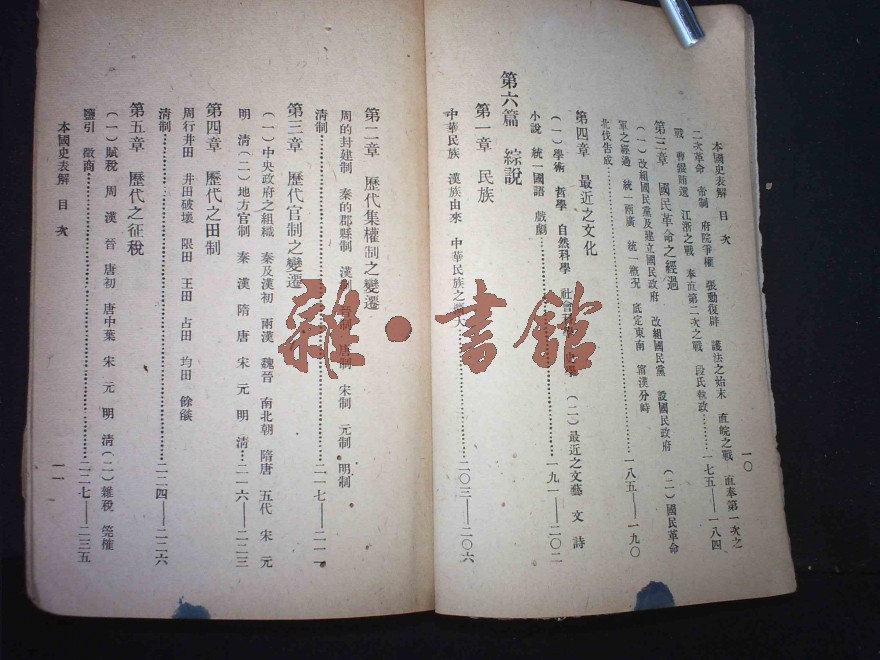 本國史表解 目次
二次革命 帝制 府院爭權 張勳復辟 護法之始末 直皖之戰 直奉第一次之
戰 曹錕賄選 江浙之戰 奉直第二次之戰 段氏執政……一七五——一八四
第三章 國民革命之經過
(一)改組國民黨及建立國民政府 改組國民黨 設國民政府 (二)國民革命
軍之經過 統一兩廣 統一概況 底定東南 甯漢分峙
北伐告成……一八五——一九〇
第四章 最近之文化
(一)學術 哲學 自然科學 社會科學 (二)最近之文藝 文 詩
小說 統一國語 戲劇……一九一——二〇二
第六篇 綜說
第一章 民族
中華民族 漢族由來 中華民族之擴大……二〇三——二〇六
一〇
第二章 歷代集權制之變遷
周的封建制 秦的郡縣制 漢制 晉制 唐制 宋制 元制 明制
清制……二一七——二一一
第三章 歷代官制之變遷
(一)中央政府之組織 秦及漢初 兩漢 魏晉 南北朝 隋唐 五代 宋 元
明 清(二)地方官制 秦 漢 隋 唐 宋 元 明 清…二一六——二二三
第四章 歷代之田制
周行井田 井田破壞 限田 王田 占田 均田 餘燄
清制……二二四——二二六
第五章 歷代之征稅
(一)賦稅 周 漢 晉 唐初 唐中葉 宋 元 明 清(二)雜稅 筦榷
鹽引 徵商……二二七——二三五
本國史表解 目次
一一
雜·書館